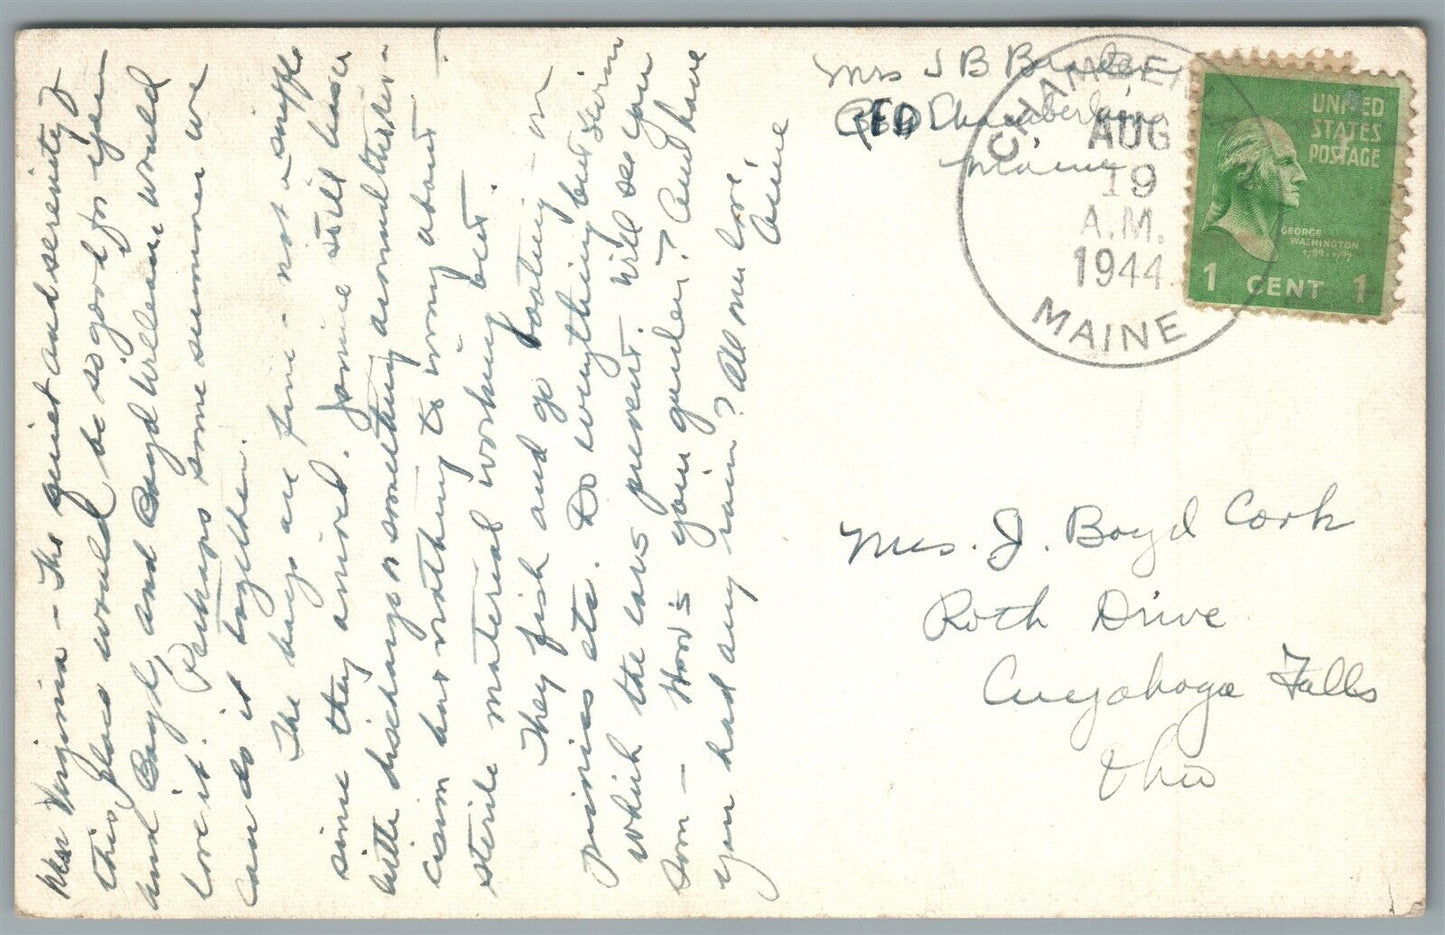 Dear Virginia - The quiet and serenity of
this place would be so good for you
and Boyd and Boyd would
love it. Perhaps some summer we
can do it together.
The boys are fine - not a sniffle
since they arrived. Jamie still has a
little discharge or something around there -
cism has nothing to worry about
sterile material working best.
They fish and go boating - on
picnics etc. Do everything but swim
which the ears prevent. Will see you
soon - How's your garden? And have
you had any rain? All my love
Anne
Mrs J B
Chamberlain
Maine
CHAMBER
AUG
19
A.M.
1944
MAINE
UNITED
STATES
POSTAGE
GEORGE
WASHINGTON
1789-1797
1 CENT 1
Mrs. J. Boyd Cork
Roth Drive
Cuyahoga Falls
Ohio